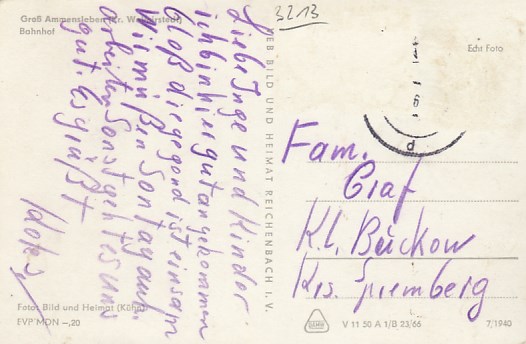 Groß Ammensleben (Kr. Wolmirstedt)
Bahnhof
3213
Echt Foto
Liebe Inge und Kinder
ich bin hier gut angekommen
Bloß die gegend ist einsam
Wir mißen Sontag auf.
arbeiten Sonst geht es uns
gut. es grüßt
VEB BILD UND HEIMAT REICHENBACH I. V.
Fam.
Graf
Kl. Buckow
Krs. Spremberg
Fotos Bild und Heimat (Kühn)
EVP MDN –,20
V 11 50 A 1/B 23/66
7/1940